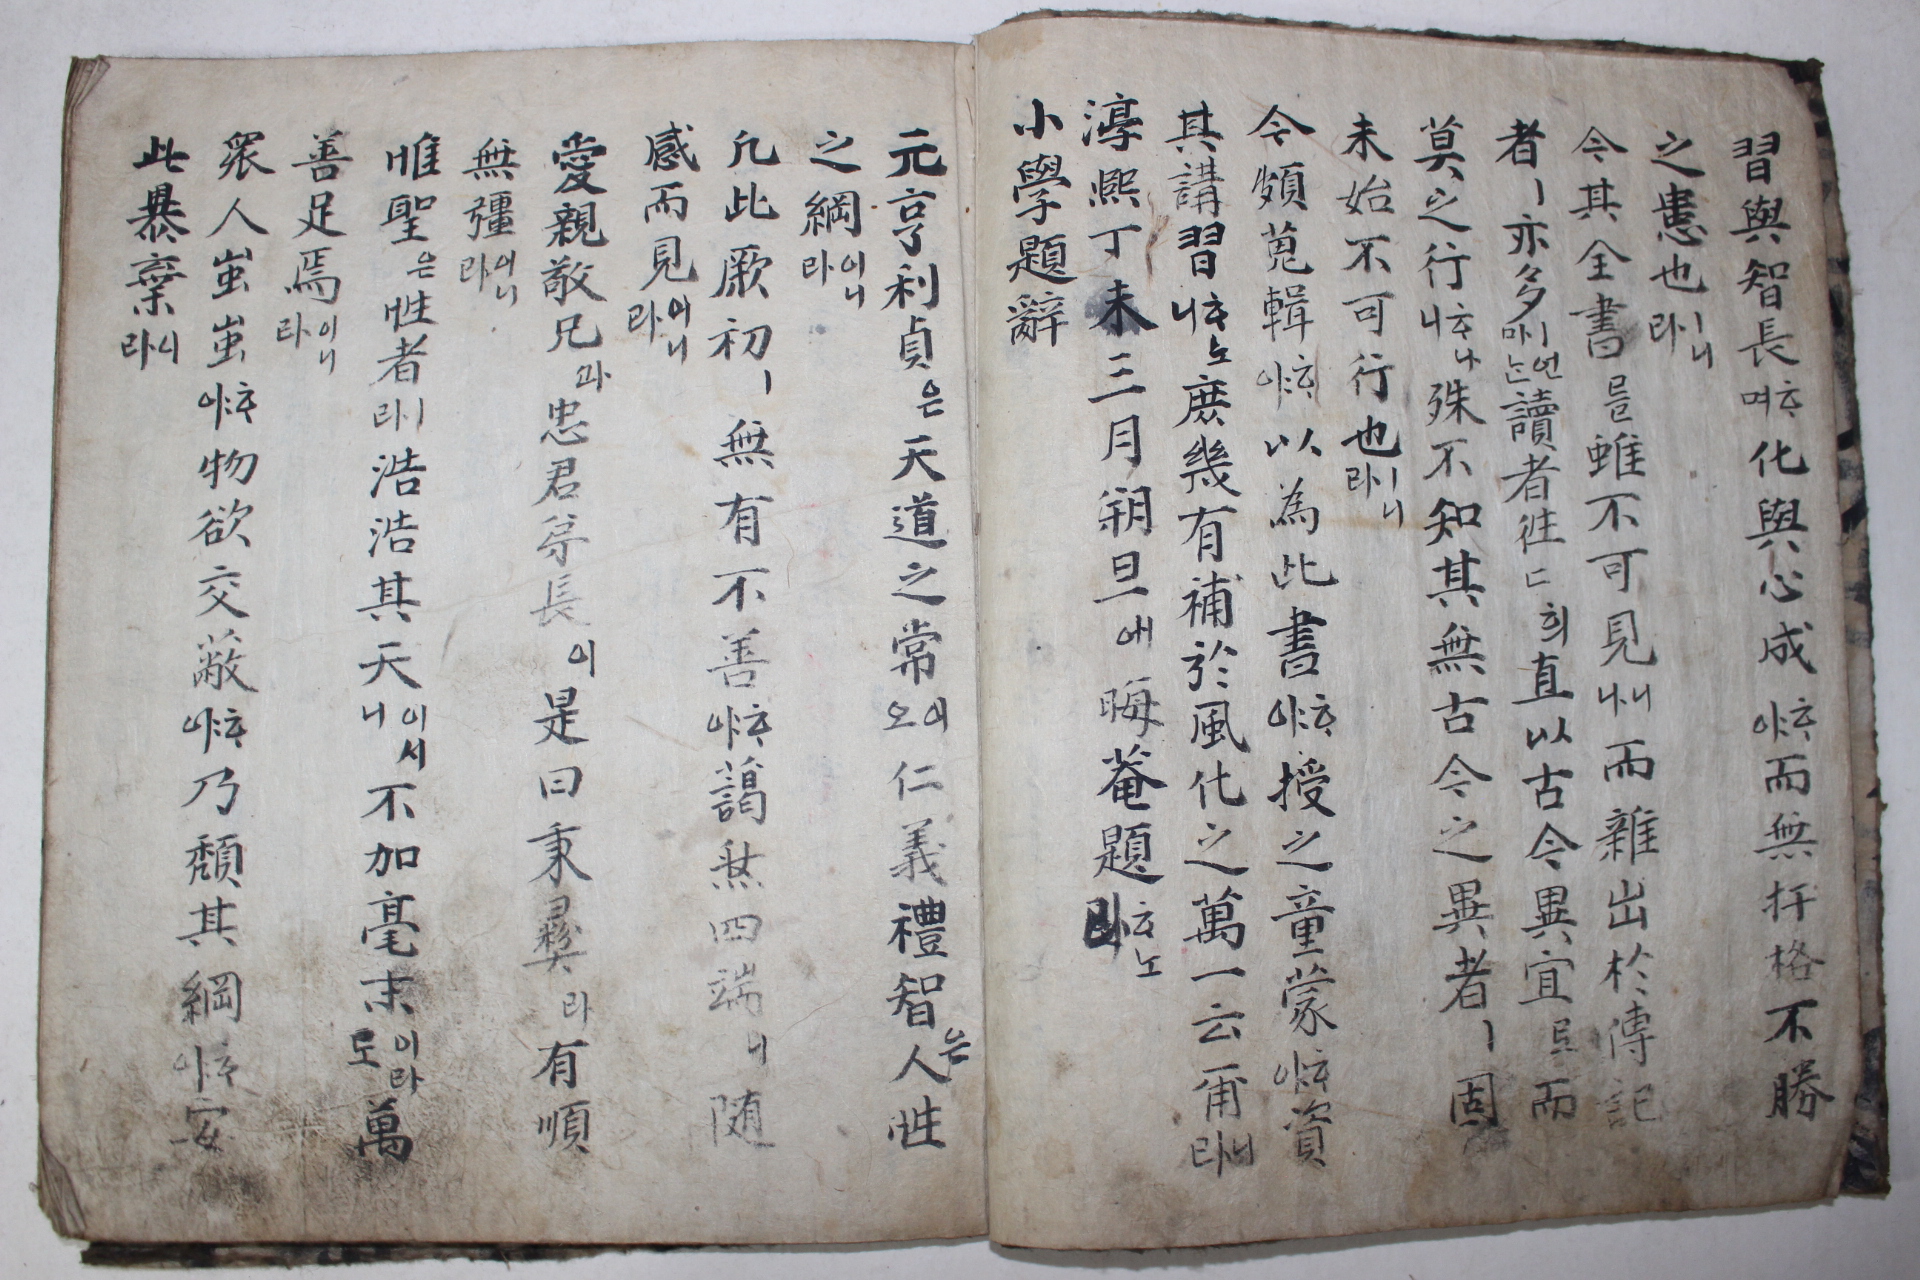 習與智長ᄒᆞ며化與心成ᄒᆞ야而無扞格不勝
之患也ㅣ니라
今其全書를雖不可見니나而雜出於傳記
者ㅣ亦多ㅣ언마ᄂᆞᆫ讀者往ㄷ히直以古今異宜로而
莫之行ᄒᆞ나니殊不知其無古今之異者ㅣ固
未始不可行也ㅣ니라
今頗蒐輯ᄒᆞ야以為此書ᄒᆞ야授之童蒙ᄒᆞ야資
其講習ᄒᆞ노니庶幾有補於風化之萬一云爾니라
淳熙丁未三月朔旦에晦菴題ᄒᆞ노라
小學題辭
元亨利貞은天道之常이오仁義禮智는人性
之綱이니라
凡此厥初ㅣ無有不善ᄒᆞ야藹然四端니随
感而見이니라
愛親敬兄과忠君弟長이是曰秉彛라有順
無彊이니라
惟聖은性者라ㅣ浩浩其天이시니不加毫末이라도萬
善足焉이니라
衆人蚩蚩ᄒᆞ야物欲交蔽ᄒᆞ야乃頹其綱ᄒᆞ야安
此暴棄니라